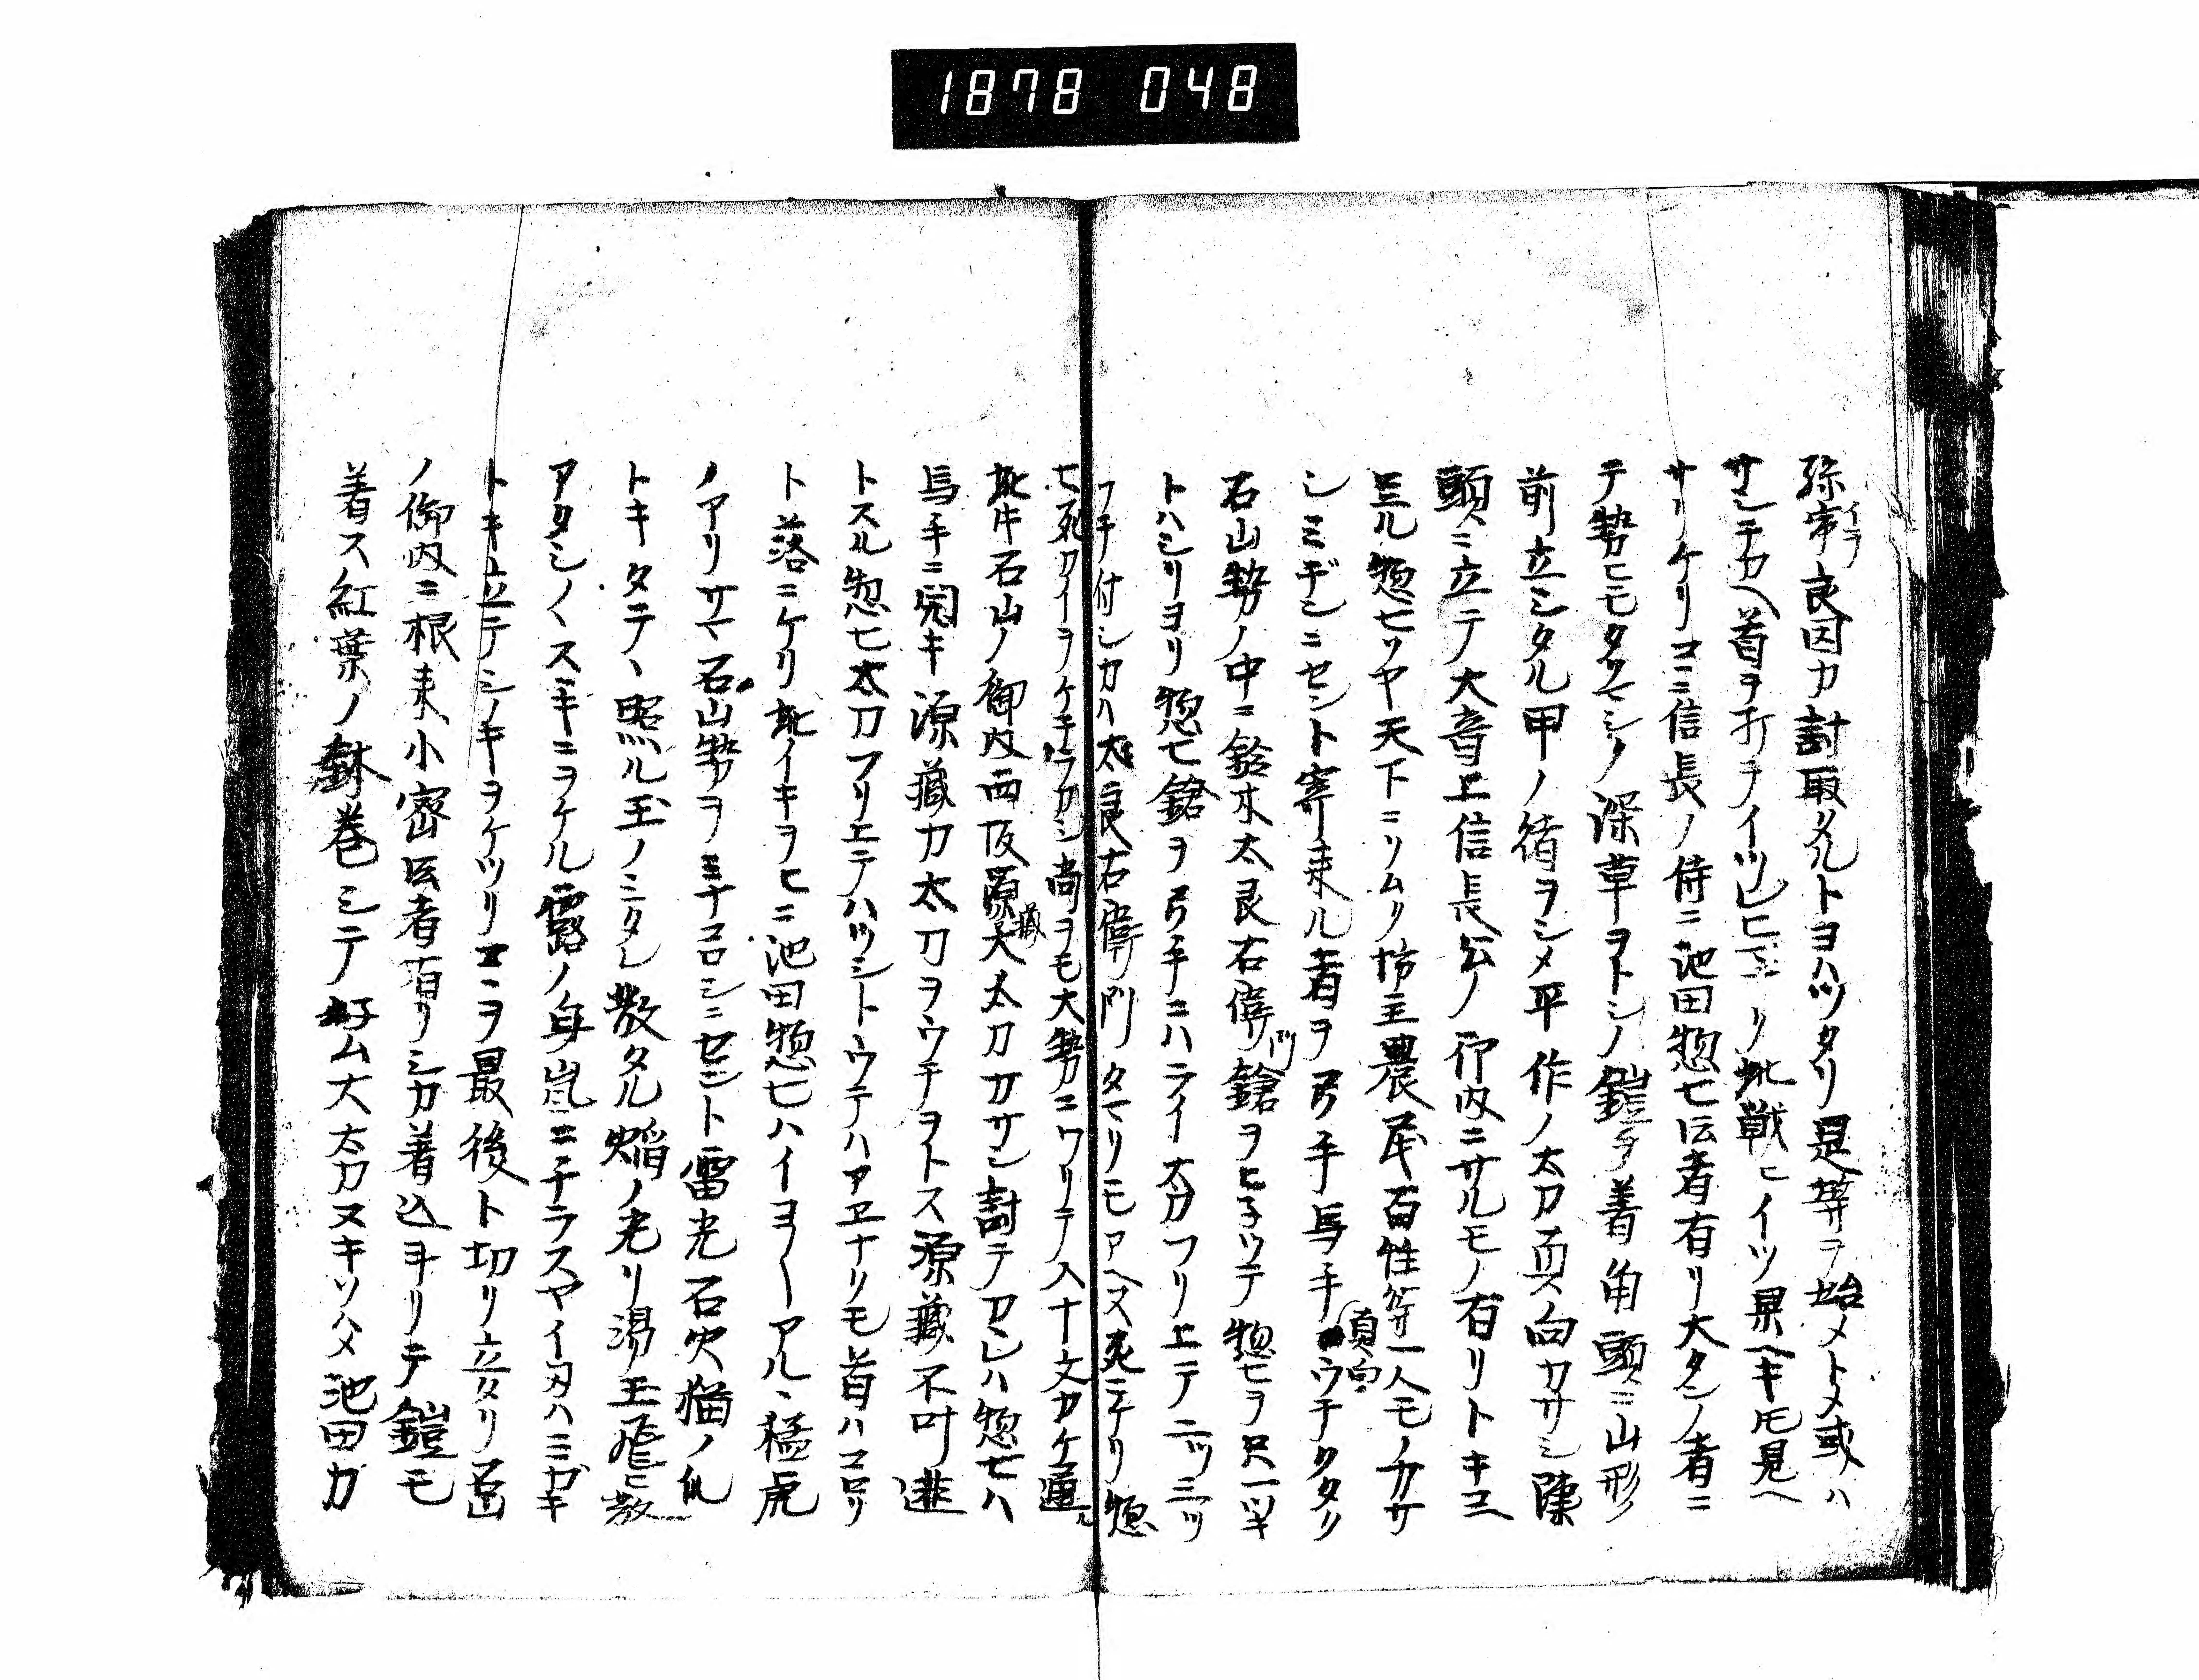 1878 048
弥市良因カ討取タルトヨハツタリ是等ヲ始メトメ或ハ
サシチカヘ首ヲ打チ此戦ヒイツ果ヘキ氏見ヘ
サリケリコヽニ信長ノ侍ニ池田惣七ト云者有リ大タンノ者ニ
テ勢ヒモタクマシノ深草ヲトシノ鎧ヲ着角頭ニ山形
前立シタル甲ノ緒ヲシメ平作ノ太刀真向カサシ陳
頭ニ立テ大音上信長公ノ御内ニサルモノ有リトキコ
ヱル惣七リヤ天下ニリムク坊主農民百性等一人モノカサ
シミヂンニセント寄来ル者ヲ弓手馬手真向ウチタタリ
石山勢ノ中ニ鈴木太良右衛門鎗ヲヒネツテ惣七ヲ只一ツキ
トハシリヨリ惣七鎗ヲ弓手ニハライ太刀フリ上テ二ツ三ツ
ウチ付シカハ太良右衛門タマリモアヘス死テケリ惣
七死カイヲケチラカシ尚ヲモ大勢ニワリテ入十文カケ通ル
此片石山ノ御内西阪源蔵大太刀カサシ討テカレハ惣七ハ
馬手ニ開キ源蔵カ太刀ヲウチヲトス源蔵不叶逃
トスル惣七太刀フリ上テハツシトウテハアエナリモ首ハコロリ
ト落ニケリ此イキヲヒニ池田惣七ハイヨ〱アルヽ猛虎
ノアリサマ石山勢ヲミナコロシニセント雷光石火猫ノ
トキタテヽ照ル玉ノミタレ散タル焔ノ光リ湯玉飛ヒ散
アタシノヽスヽキニヲケル露ノ身嵐ニチラスヤイタハミカキ
トキ立テシノキヲケツリコヽヲ最後ト切リ立タリ
ノ御内ニ根来小密ト云者有リシカ着込ヲキリテ鎧モ
着ス紅葉ノ鉢巻シテ好ム大太刀ヌキソハメ池田カ